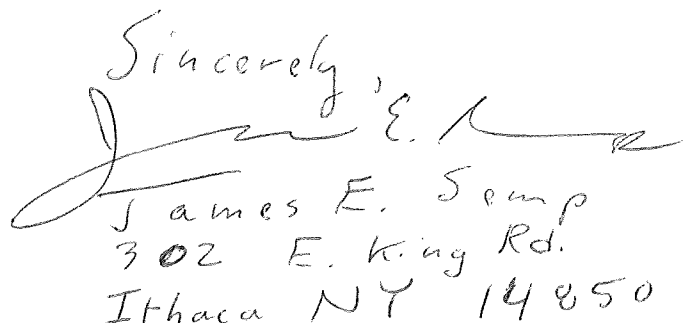 Sincerely,
James E. Semp
302 E. King Rd.
Ithaca NY 14850